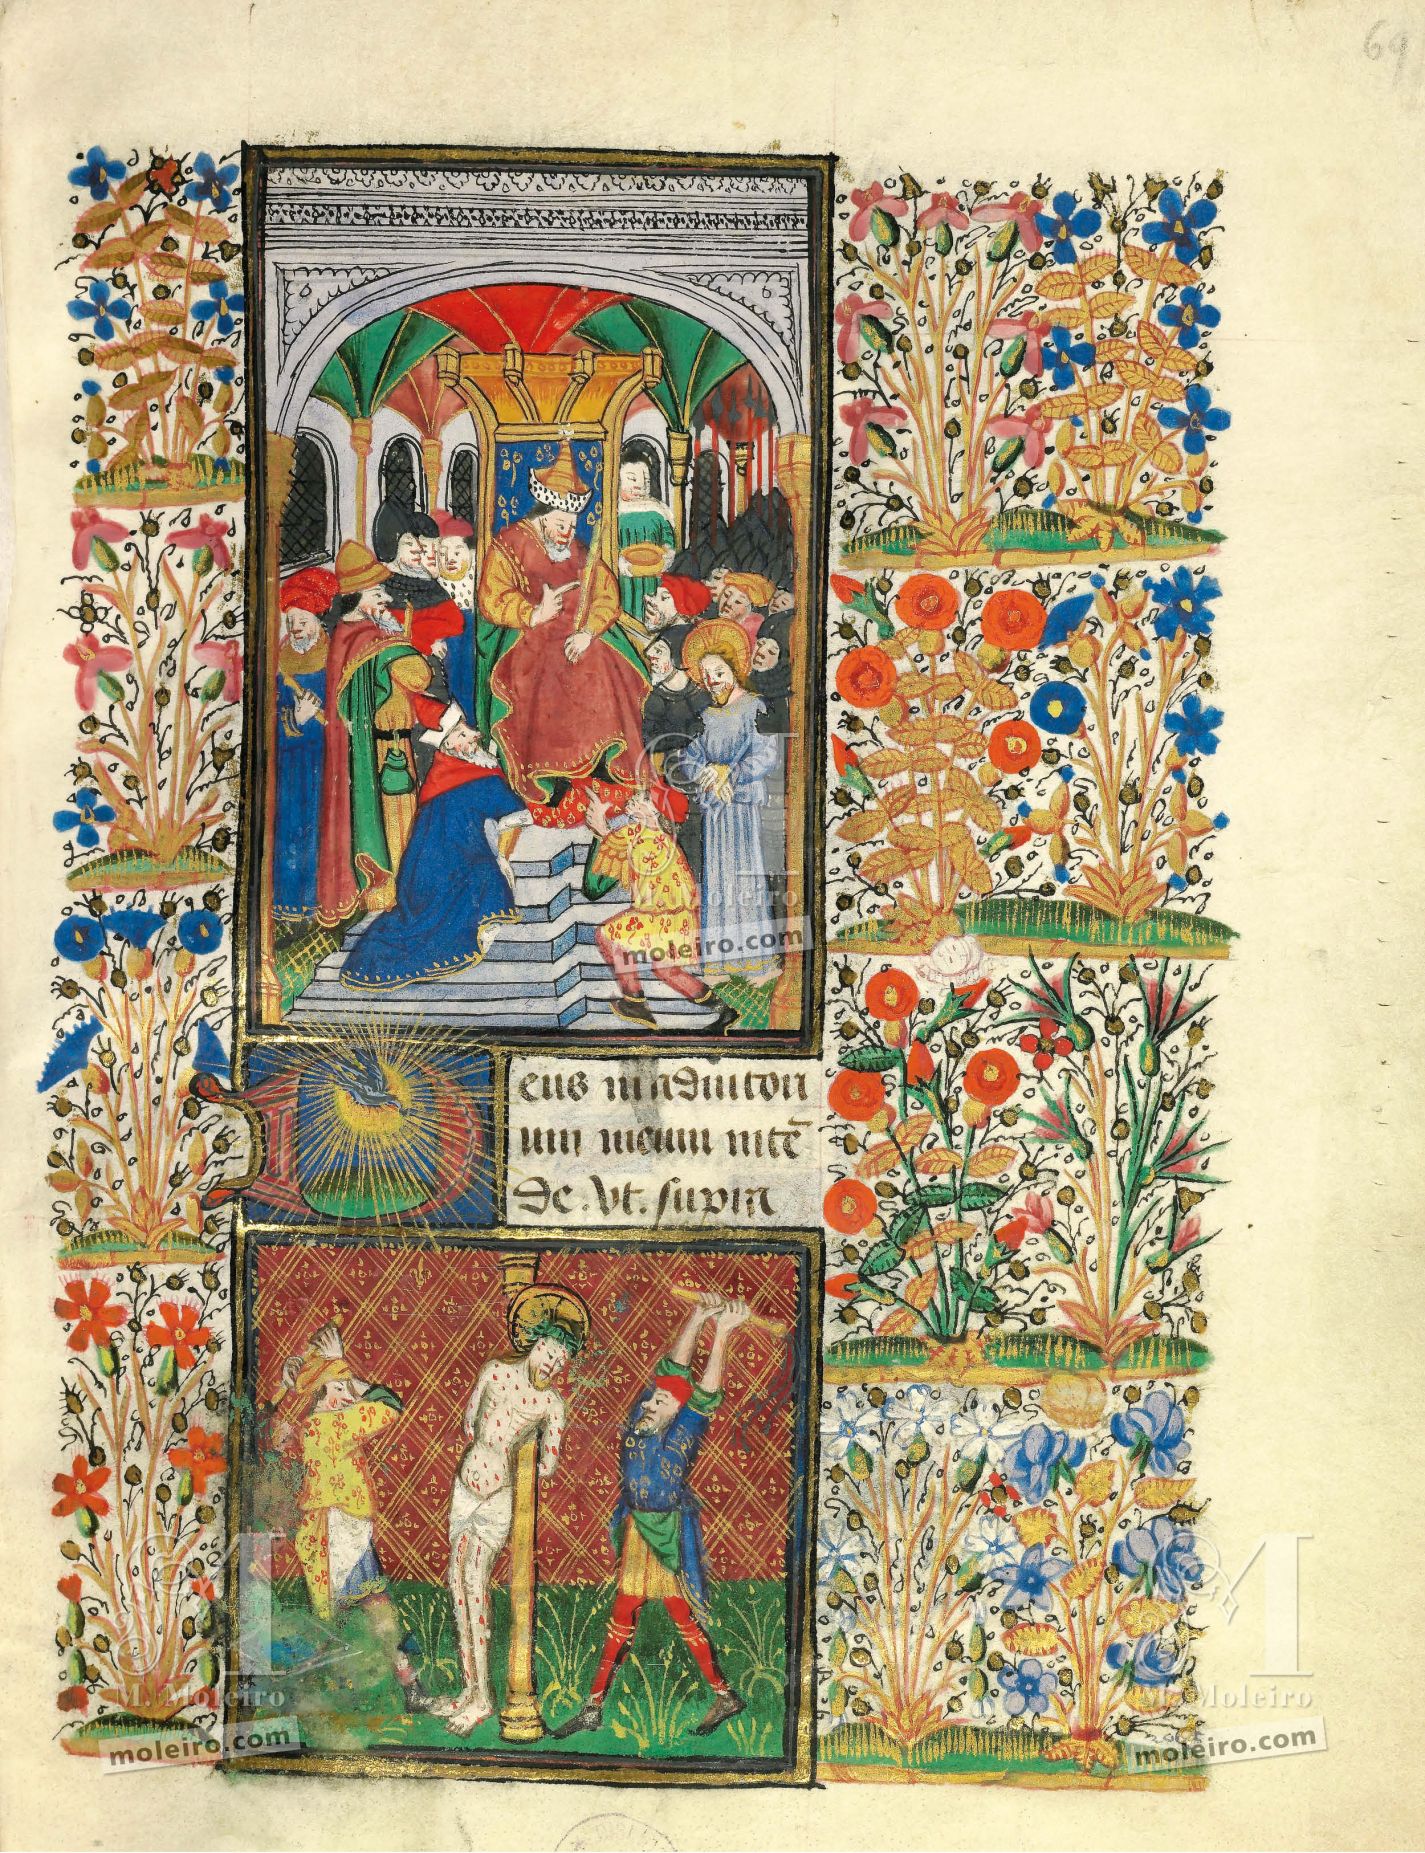 69
eus in adiutori
um meum inte᷑
de. Vt. supra
M. Moleiro
moleiro.com
M. Moleiro
moleiro.com
M. Moleiro
moleiro.com